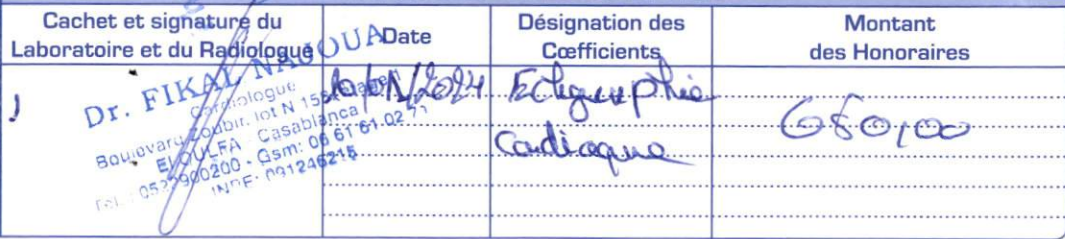 Cachet et signature du
Laboratoire et du Radiologue
Date
Désignation des
Cœfficients
Montant
des Honoraires
Dr. FIKAL NAGOUA
Cardiologue
Boulevard Zoubir. lot N 155
EL OULFA Casablanca
0200 - Gsm: 06 61 61.02 71
INPE: 091246215
Echographie
Cardiaque
680,00